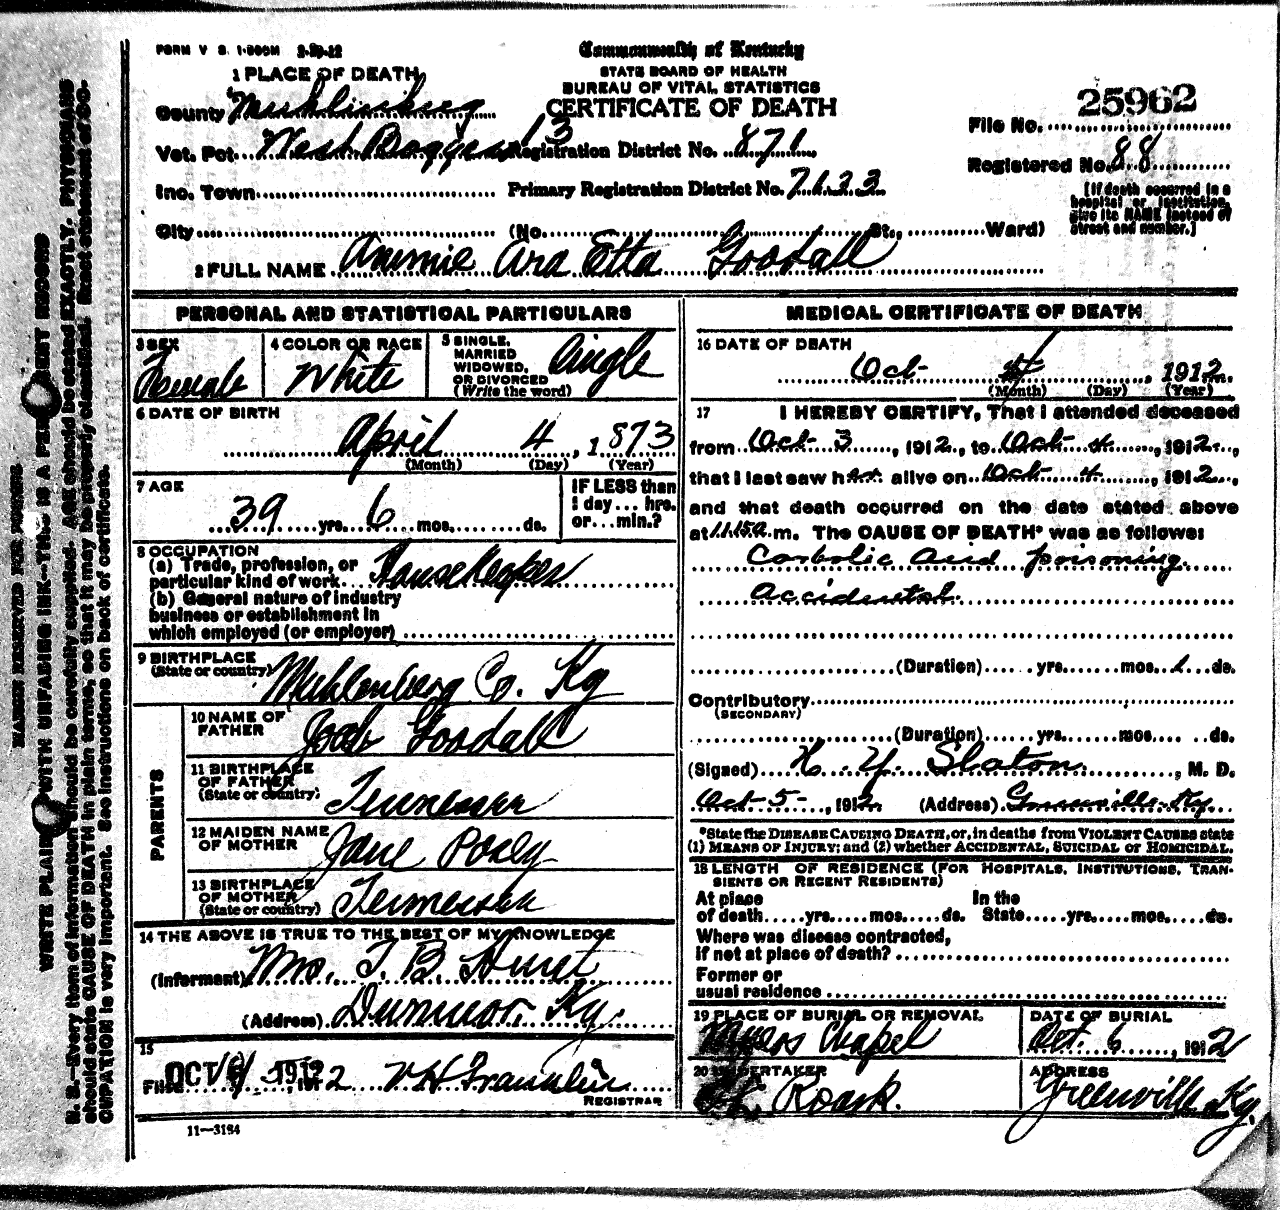 FORM V S. 1-500M 2-29-12
Commonwealth of Kentucky
STATE BOARD OF HEALTH
BUREAU OF VITAL STATISTICS
CERTIFICATE OF DEATH
1 PLACE OF DEATH
County Muhlenburg
Vot. Pct. West Boggess 13 Registration District No. 871
Inc. Town Primary Registration District No. 7123
City (No. St., Ward)
File No. 25962
Registered No. 88
[If death occurred in a
hospital or institution,
give its NAME instead of
street and number.]
2 FULL NAME Annie Ara Etta Goodall
PERSONAL AND STATISTICAL PARTICULARS
3 SEX
Female
4 COLOR OR RACE
White
5 SINGLE,
MARRIED
WIDOWED,
OR DIVORCED
(Write the word)
Single
6 DATE OF BIRTH
April 4, 1873
(Month) (Day) (Year)
7 AGE
39 yrs. 6 mos. ds.
IF LESS than
1 day... hrs.
or... min.?
8 OCCUPATION
(a) Trade, profession, or
particular kind of work. Housekeeper
(b) General nature of industry
business or establishment in
which employed (or employer)
9 BIRTHPLACE
(State or country) Muhlenberg Co. Ky
PARENTS
10 NAME OF
FATHER Goodall
11 BIRTHPLACE
OF FATHER
(State or country) Tennessee
12 MAIDEN NAME
OF MOTHER Jane Posey
13 BIRTHPLACE
OF MOTHER
(State or country) Tennessee
14 THE ABOVE IS TRUE TO THE BEST OF MY KNOWLEDGE
(Informant) Mrs. T. B. Hunt
(Address) Dunmor, Ky.
15
Filed OCT 1912, 1912 V H Franklin
REGISTRAR
11—3184
MEDICAL CERTIFICATE OF DEATH
16 DATE OF DEATH
Oct 4, 1912
(Month) (Day) (Year)
17 I HEREBY CERTIFY, That I attended deceased
from Oct 3, 1912, to Oct 4, 1912,
that I last saw her alive on Oct 4, 1912,
and that death occurred on the date stated above
at 11.15a m. The CAUSE OF DEATH* was as follows:
Carbolic acid poisoning
Accidental.
(Duration) yrs. mos. 1 ds.
Contributory
(SECONDARY)
(Duration) yrs. mos. ds.
(Signed) H. Y. Slaton, M. D.
Oct 5-, 1912 (Address) Greenville Ky
*State the DISEASE CAUSING DEATH, or, in deaths from VIOLENT CAUSES state
(1) MEANS OF INJURY; and (2) whether ACCIDENTAL, SUICIDAL or HOMICIDAL.
18 LENGTH OF RESIDENCE (FOR HOSPITALS, INSTITUTIONS, TRAN-
SIENTS OR RECENT RESIDENTS)
At place In the
of death yrs. mos. ds. State yrs. mos. ds.
Where was disease contracted,
if not at place of death?
Former or
usual residence
19 PLACE OF BURIAL OR REMOVAL
Myers Chapel
DATE OF BURIAL
Oct. 6, 1912
20 UNDERTAKER
Roark.
ADDRESS
Greenville Ky.
MARGIN RESERVED FOR BINDING
WRITE PLAINLY WITH UNFADING INK—THIS IS A PERMANENT RECORD
N. B.—Every item of information should be carefully supplied. AGE should be stated EXACTLY. PHYSICIANS
should state CAUSE OF DEATH in plain terms, so that it may be properly classified. Exact statement of OC-
CUPATION is very important. See instructions on back of certificate.